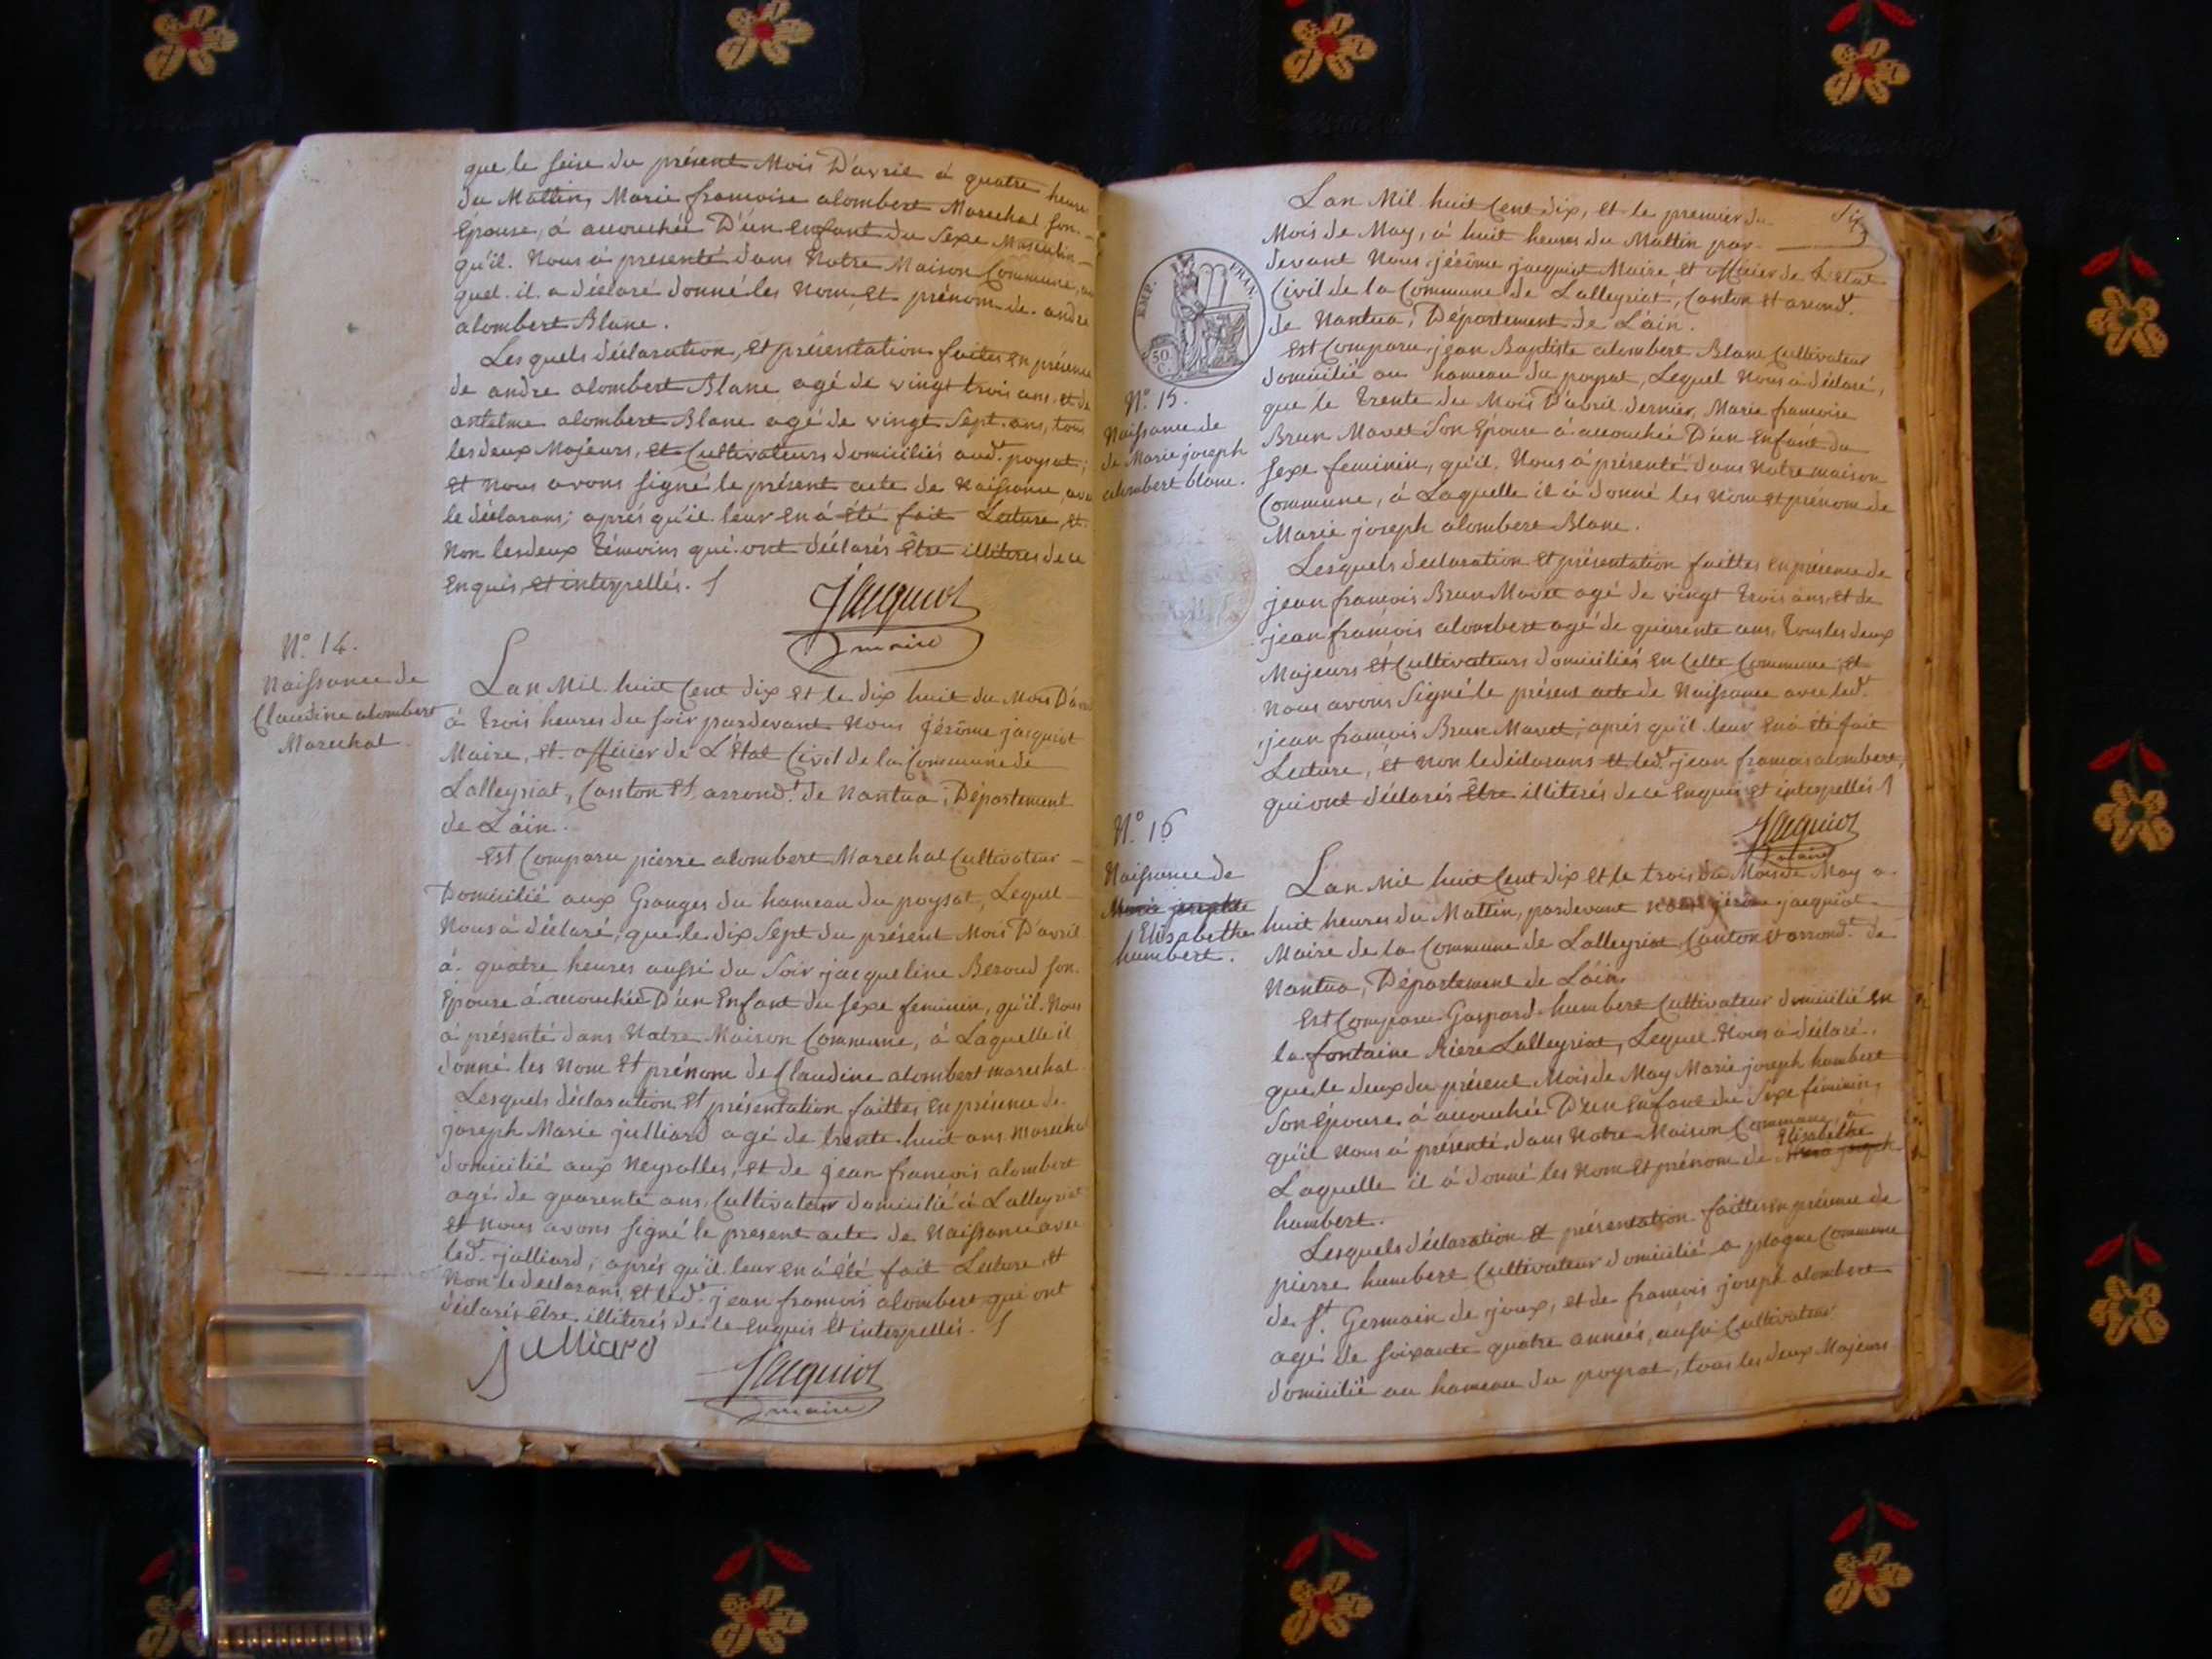 que le seise du présent Mois D'avril à quatre heure
du Mattin, Marie francoise alombert Marechal son
Epouse, à accouchée D'un Enfant du Sexe Masculin
qu'il Nous à presenté dans Notre Maison Commune, au
quel il a déclaré donné les Nom et prénom de andre
alombert Blanc.
Lesquels déclaration, et présentation faites en présence
de andre alombert Blanc agé de vingt trois ans et de
antelme alombert Blanc agé de vingt Sept ans, tous
les deux Majeurs, et Cultivateurs domiciliés aud.t poysat;
et Nous avons signé le présent acte de Naissance, avec
le déclarans; aprés qu'il leur en á été fait Lecture, et
Non les deux témoins qui ont déclarés être illiterés de ce
enquis, et interpellés.
Jacquiot
maire
N.o 14.
Naissance de
Claudine alombert
Marechal
Lan Mil huit Cent dix et le dix huit du Mois D'avril
à trois heures du soir pardevant Nous jérôme jacquiot
Maire, et officier de L'état Civil de la Commune de
Lalleyriat, Canton et arrond.t de Nantua, Département
de L'ain.
Est Comparu pierre alombert Marechal Cultivateur
Domicilié aux Granges du hameau du poysat, Lequel
Nous à déclaré, que le dix Sept du présent Mois D'avril
à quatre heures aussi du Soir jacqueline Beroud son
Epouse à accouchée D'un Enfant du sexe feminin, qu'il Nous
à présenté dans Notre Maison Commune, à Laquelle il
donné les Nom et prénom de Claudine alombert marechal
Lesquels déclaration et présentation faittes en présence de
joseph Marie julliard agé de trente huit ans marechal
domicilié aux Neyrolles, et de jean francois alombert
agé de quarente ans, Cultivateur domicilié à Lalleyriat
et nous avons signé le present acte de Naissance avec
led.t julliard; aprés qu'il leur en á été fait Lecture et
Non le declarans, et led.t jean francois alombert qui ont
déclarés être illiterés de ce enquis et interpellés.
julliard
Jacquiot
maire
Six
Lan Mil huit Cent dix, et le premier du
Mois de May, à huit heures du Mattin par
devant Nous jérôme jacquiot Maire et officier de L'état
Civil de la Commune de Lalleyriat, Canton et arrond.t
de Nantua, Département de L'ain.
EMP. FRAN.
50 C.
N.o 15.
Naissance de
de Marie joseph
alombert blanc.
Est Comparu jean Baptiste alombert Blanc Cultivateur
domicilié au hameau du poysat, Lequel Nous à déclaré,
que le trente du Mois D'avril dernier, Marie francoise
Brun Mavet Son Epouse à accouchée D'un Enfant du
sexe feminin, qu'il Nous à présenté dans Notre maison
Commune, à Laquelle il à donné les Nom et prénom de
Marie joseph alombert Blanc.
Lesquels declaration et présentation faittes en présence de
jean francois Brun Mavet agé de vingt trois ans, et de
jean francois alombert agé de quarente ans, tous les deux
Majeurs et Cultivateurs domiciliés en Cette Commune, et
Nous avons Signé le présent acte de Naissance avec led.t
jean francois Brun Mavet, aprés qu'il leur en á été fait
Lecture, et Non le déclarans et led.t jean francois alombert,
qui ont déclarés être illiterés de ce enquis et interpellés
Jacquiot
maire
N.o 16
Naissance de
Marie josephte
Elisabethe
humbert.
Lan Mil huit Cent dix et le trois du Mois de May a
huit heures du Mattin, pardevant Nous jérôme jacquiot
Maire de la Commune de Lalleyriat Canton et arrond.t de
Nantua, Département de L'ain.
Est Comparu Gaspard humbert Cultivateur domicilié en
la fontaine Riere Lalleyriat, Lequel Nous a déclaré,
que le deux du présent Mois de May Marie joseph humbert
Son épouse, à accouchée D'un Enfant du Sexe féminin,
qu'il Nous á présenté dans Notre Maison Commune, à
Laquelle il à donné les Nom et prénom de Elisabethe
humbert.
Lesquels déclaration et présentation faittes en présence de
pierre humbert Cultivateur domicilié a plagne Commune
de S.t Germain de joux, et de francois joseph alombert
agé de soixante quatre années, aussi Cultivateur
domicilié au hameau du poysat, tous les deux Majeurs